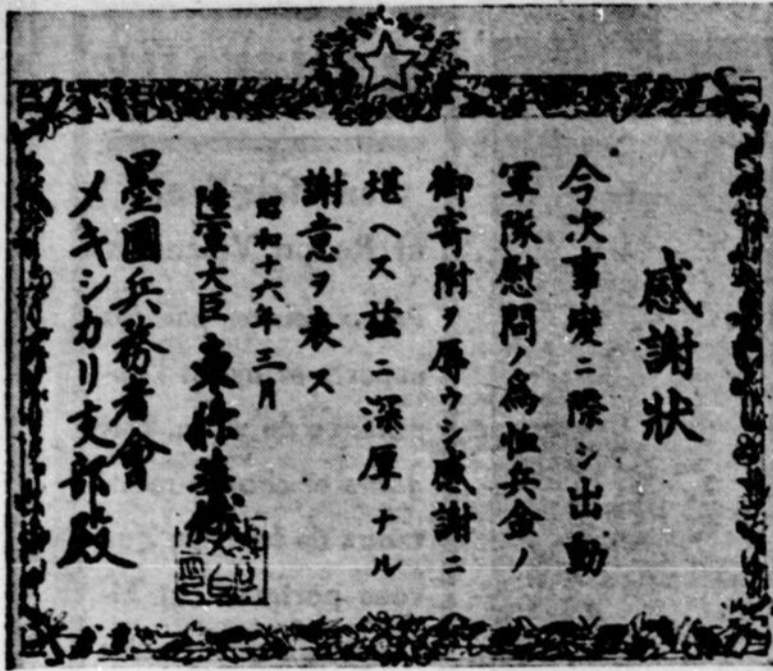 感謝狀
今次事變ニ際シ出動
軍隊慰問ノ爲恤兵金ノ
御寄附ヲ辱ウシ感謝ニ
堪ヘス茲ニ深厚ナル
謝意ヲ表ス
昭和十六年三月
陸軍大臣 東條英機
墨國兵務者會
メキシカリ支部殿